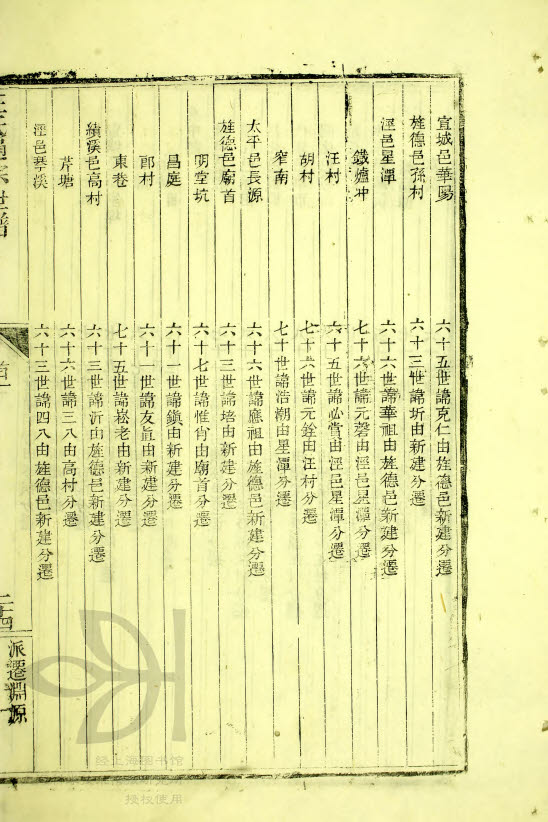 宣城邑華陽 六十五世諱克仁由旌德邑新建分遷
旌德邑孫村 六十三世諱圻由新建分遷
涇邑星潭 六十六世諱華祖由旌德邑新建分遷
鐵爐冲 七十六世諱元磬由涇邑星潭分遷
汪村 六十五世諱必賞由涇邑星潭分遷
胡村 七十六世諱元銓由汪村分遷
窄南 七十世諱浩潮由星潭分遷
太平邑長源 六十六世諱應祖由旌德邑新建分遷
旌德邑廟首 六十三世諱培由新建分遷
明堂坑 六十七世諱惟肖由廟首分遷
昌庭 六十一世諱鎭由新建分遷
郎村 六十一世諱友眞由新建分遷
東巷 七十五世諱崧老由新建分遷
績溪邑高村 六十三世諱沂由旌德邑新建分遷
芹塘 六十六世諱三八由高村分遷
涇邑琴溪 六十三世諱四八由旌德邑新建分遷
首一
二十四
派遷淵源
经上海图书馆
授权使用